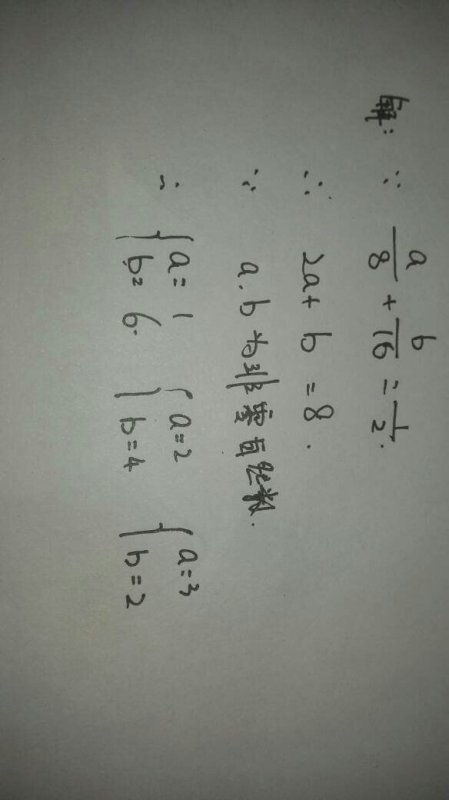 解: ∵ a/8 + b/16 = 1/2.
∴ 2a + b = 8.
∵ a.b为非零自然数.
∴ {a=1 b=6. {a=2 b=4 {a=3 b=2